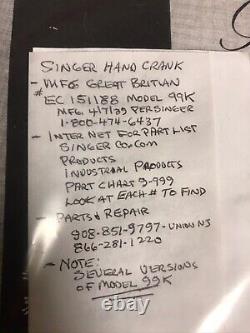 SINGER HAND CRANK
- MFG GREAT BRITIAN
# EC 151188 MODEL 99K
MFG 4/7/39 PER SINGER
1-800-474-6437
- INTERNET FOR PART LIST
SINGER CO.COM
PRODUCTS
INDUSTRIAL PRODUCTS
PART CHART 9-999
LOOK AT EACH # TO FIND
- PARTS & REPAIR
908-851-9797-UNION NJ
866-281-1220
- NOTE:
SEVERAL VERSIONS
OF MODEL 99K